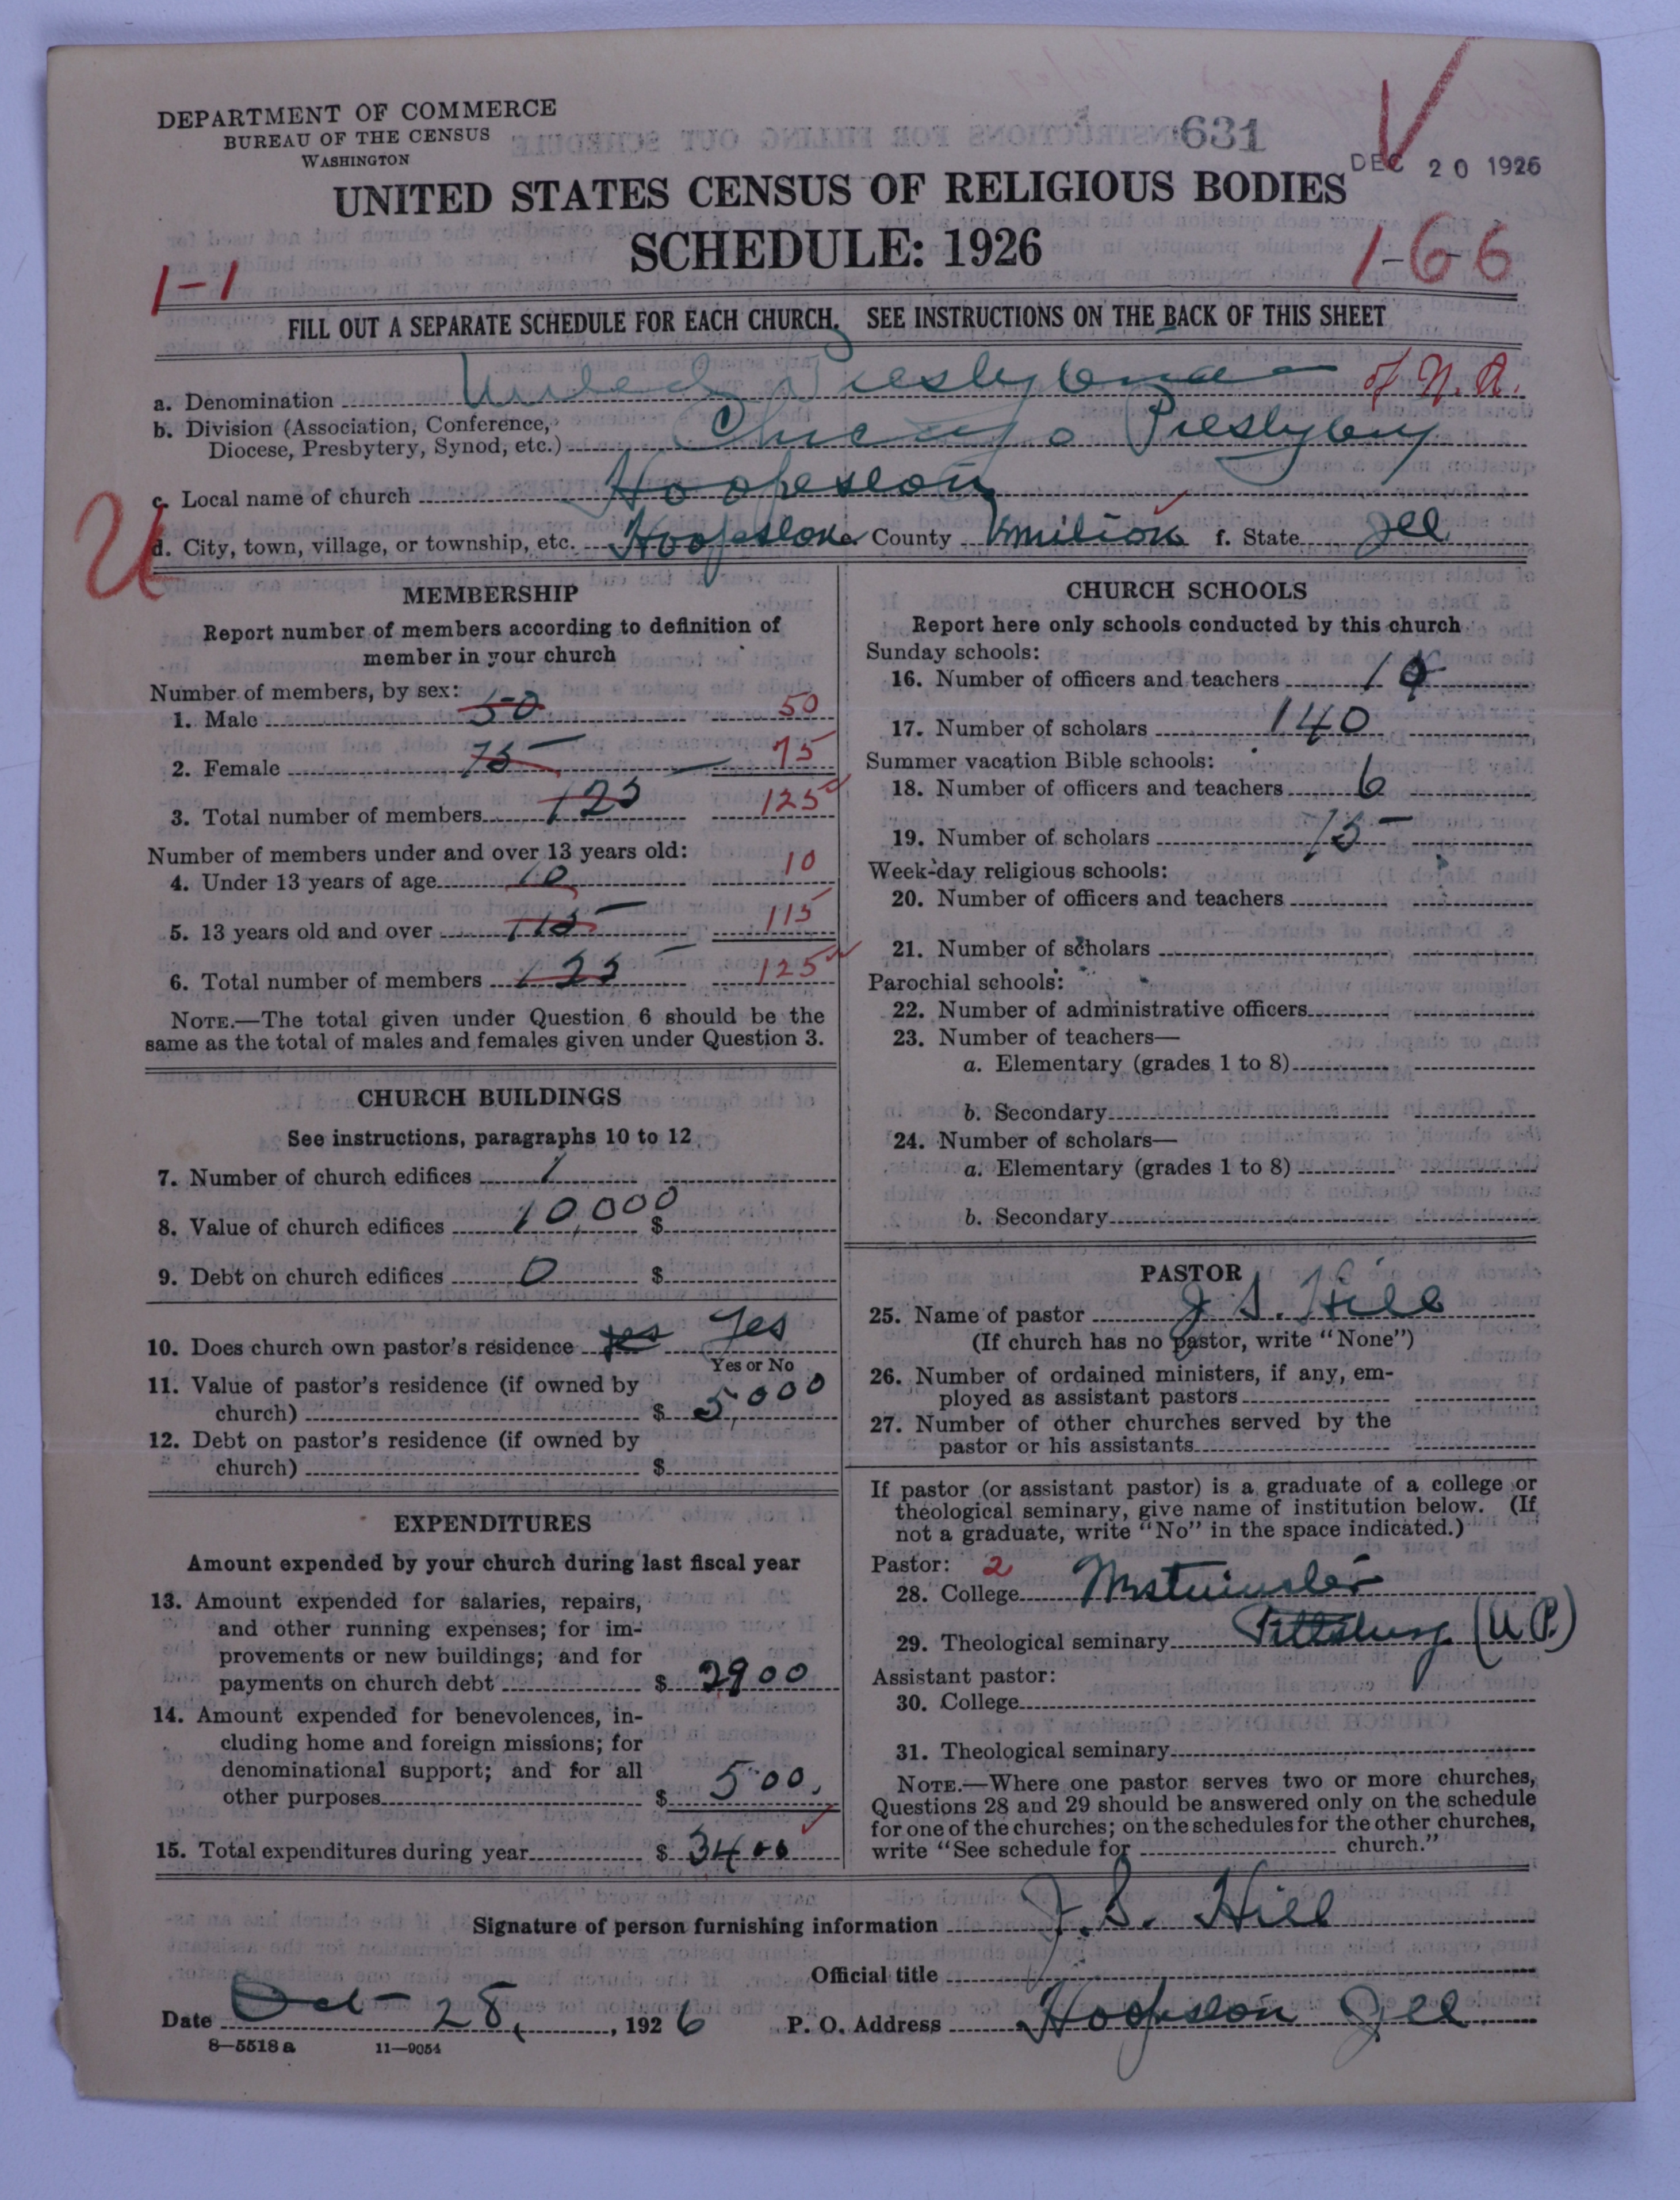 DEPARTMENT OF COMMERCE
BUREAU OF THE CENSUS
WASHINGTON
631
DEC 20 1926
UNITED STATES CENSUS OF RELIGIOUS BODIES
SCHEDULE: 1926
1-1
1-66
FILL OUT A SEPARATE SCHEDULE FOR EACH CHURCH. SEE INSTRUCTIONS ON THE BACK OF THIS SHEET
a. Denomination United Presbyterian of N.A.
b. Division (Association, Conference, Diocese, Presbytery, Synod, etc.) Chicago Presbytery
c. Local name of church Hoopeston
U
d. City, town, village, or township, etc. Hoopeston e. County Vermilion f. State Ill
MEMBERSHIP
Report number of members according to definition of
member in your church
Number of members, by sex:
1. Male 50 50
2. Female 75 75
3. Total number of members 125 125
Number of members under and over 13 years old:
4. Under 13 years of age 10 10
5. 13 years old and over 115 115
6. Total number of members 125 125
NOTE.—The total given under Question 6 should be the
same as the total of males and females given under Question 3.
CHURCH BUILDINGS
See instructions, paragraphs 10 to 12
7. Number of church edifices 1
8. Value of church edifices 10,000 $
9. Debt on church edifices 0 $
10. Does church own pastor's residence yes Yes
Yes or No
11. Value of pastor's residence (if owned by
church) $ 5,000
12. Debt on pastor's residence (if owned by
church) $
EXPENDITURES
Amount expended by your church during last fiscal year
13. Amount expended for salaries, repairs,
and other running expenses; for im-
provements or new buildings; and for
payments on church debt $ 2900
14. Amount expended for benevolences, in-
cluding home and foreign missions; for
denominational support; and for all
other purposes $ 500
15. Total expenditures during year $ 3400
CHURCH SCHOOLS
Report here only schools conducted by this church
Sunday schools:
16. Number of officers and teachers
17. Number of scholars 140
Summer vacation Bible schools:
18. Number of officers and teachers 6
19. Number of scholars 75
Week-day religious schools:
20. Number of officers and teachers
21. Number of scholars
Parochial schools:
22. Number of administrative officers
23. Number of teachers—
a. Elementary (grades 1 to 8)
b. Secondary
24. Number of scholars—
a. Elementary (grades 1 to 8)
b. Secondary
PASTOR
25. Name of pastor J. S. Hill
(If church has no pastor, write "None")
26. Number of ordained ministers, if any, em-
ployed as assistant pastors
27. Number of other churches served by the
pastor or his assistants
If pastor (or assistant pastor) is a graduate of a college or
theological seminary, give name of institution below. (If
not a graduate, write "No" in the space indicated.)
Pastor: 2
28. College Westminster
29. Theological seminary Pittsburg (U.P.)
Assistant pastor:
30. College
31. Theological seminary
NOTE.—Where one pastor serves two or more churches,
Questions 28 and 29 should be answered only on the schedule
for one of the churches; on the schedules for the other churches,
write "See schedule for church."
Signature of person furnishing information J. S. Hill
Official title
Date Oct 28, 1926 P. O. Address Hoopeston Ill
8—5518 a 11—9054